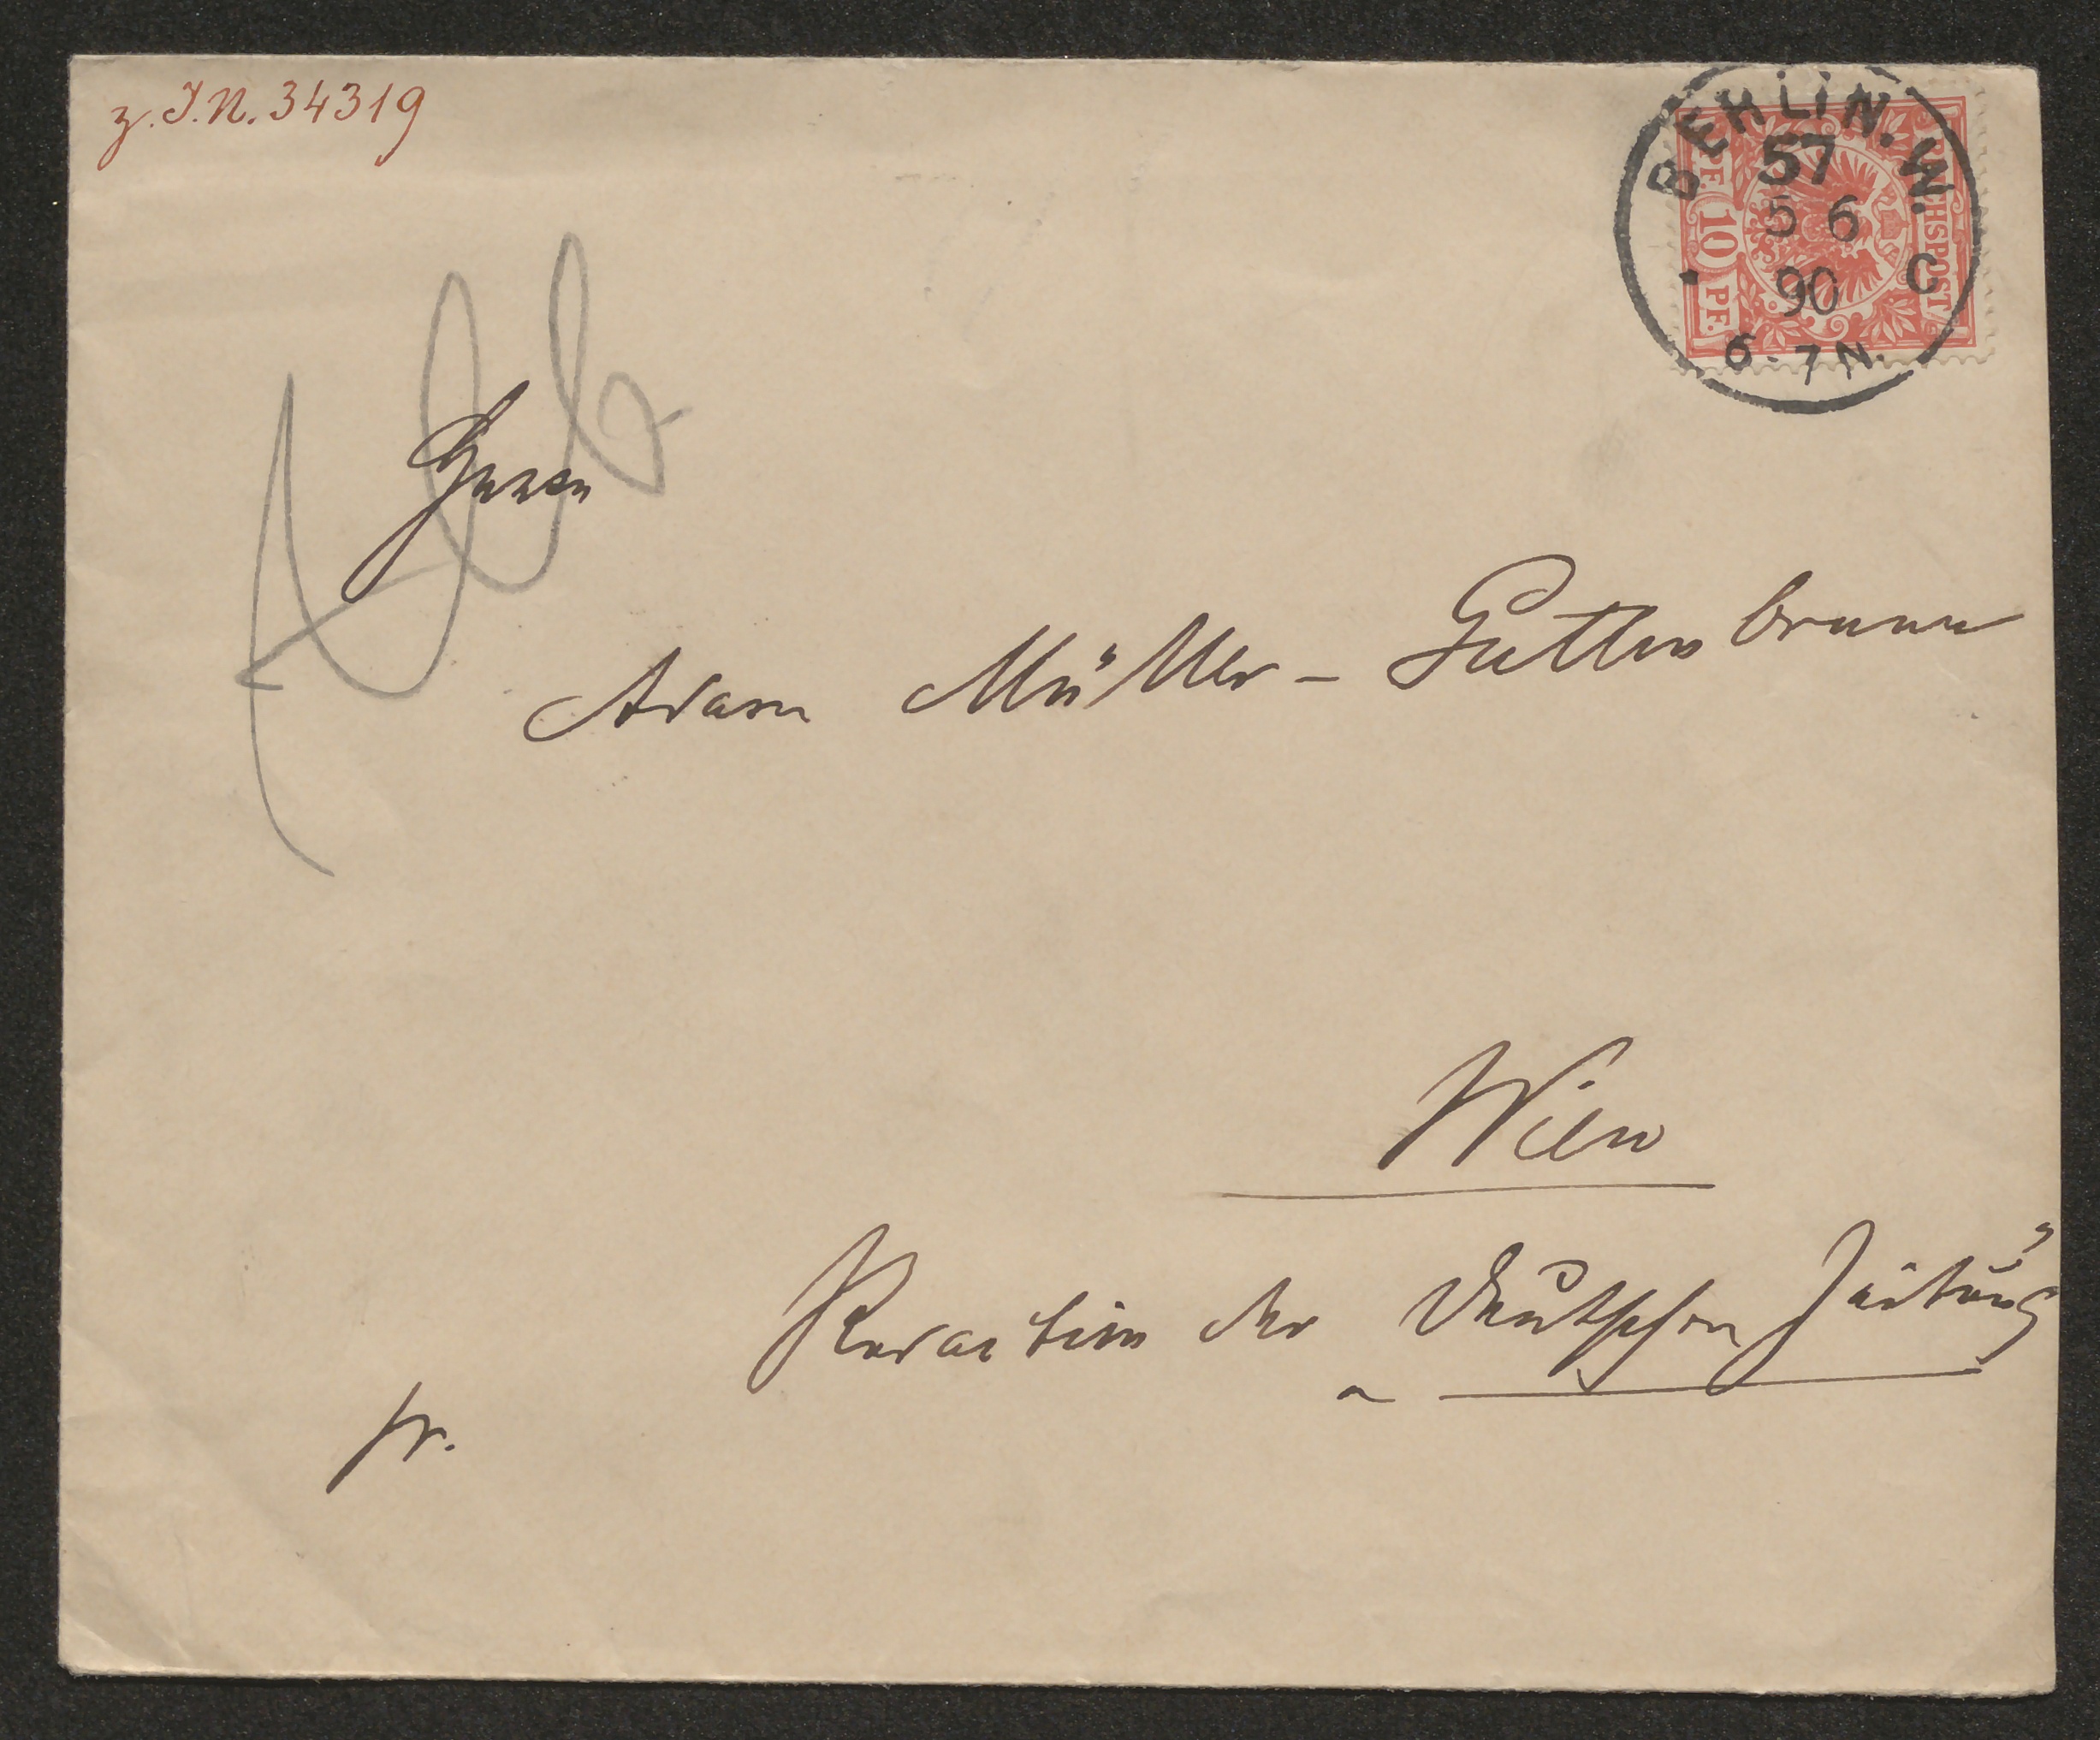 z. I. N. 34319
BERLIN. W.
57
5 6
90 C
6-7 N.
REICHSPOST
10 PF. 10 PF.
Herrn
Adam Müller-Guttenbrunn
Wien
Redaction der Deutschen Zeitung
fr.